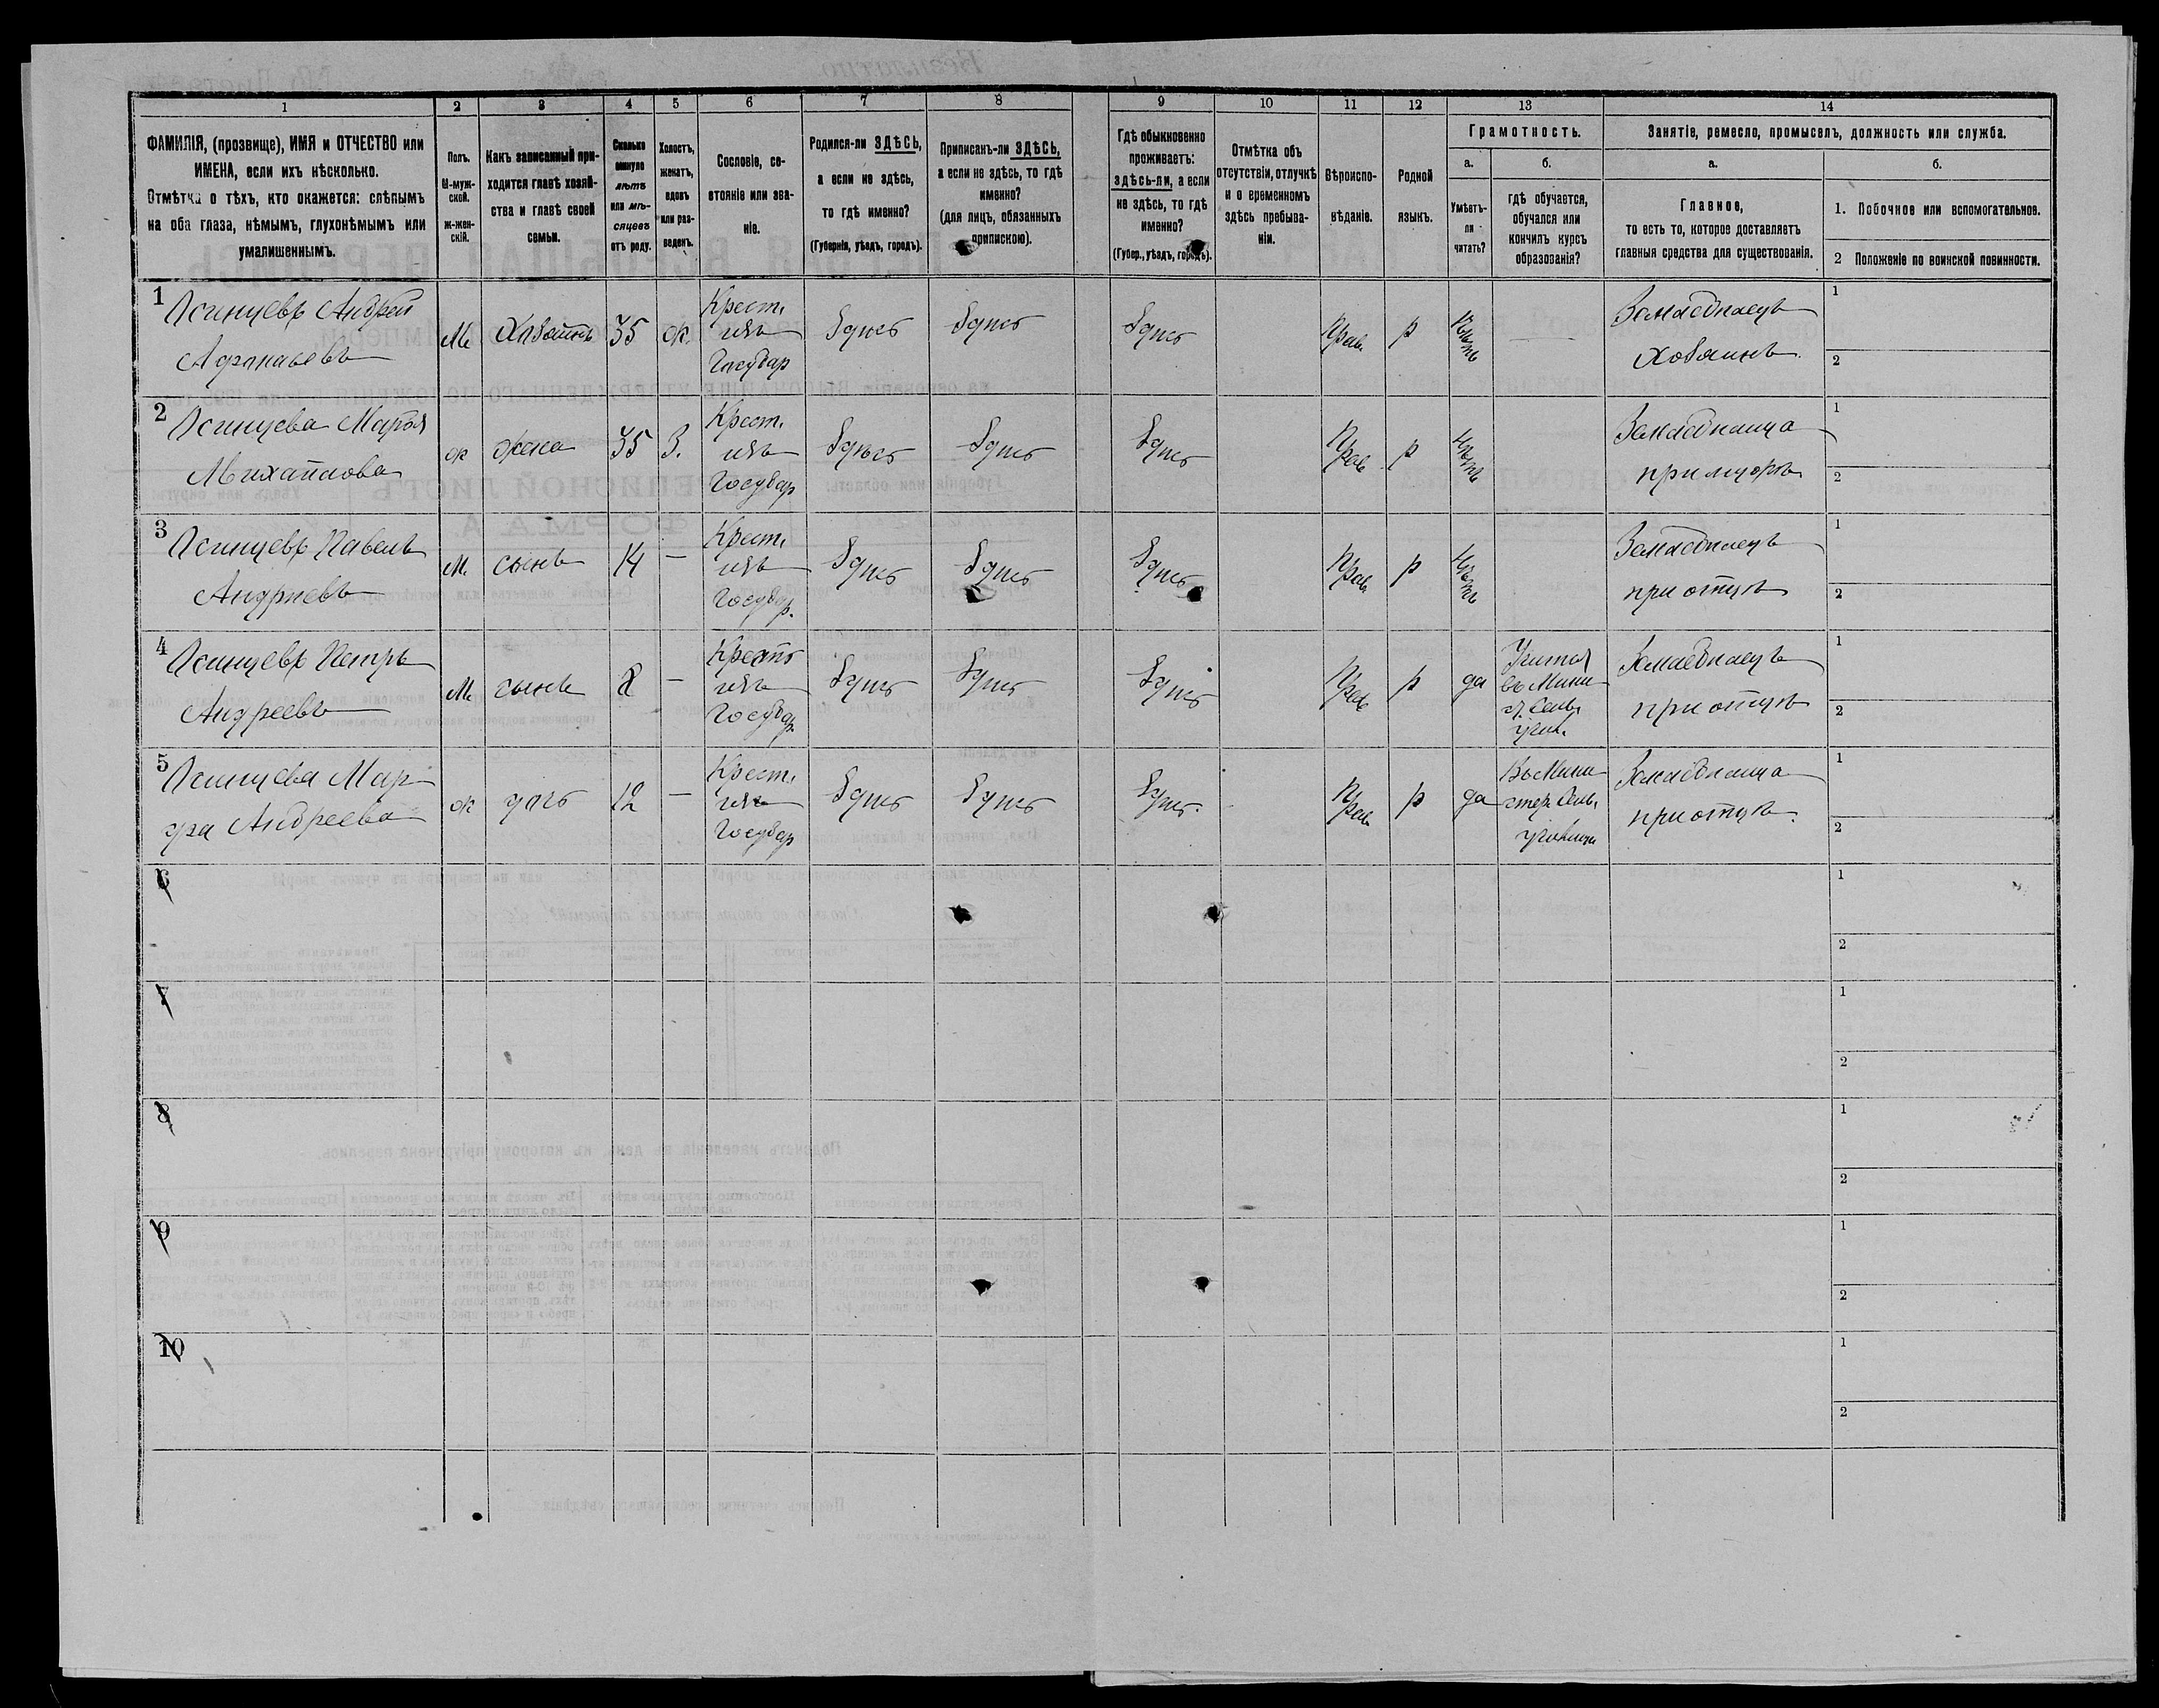 1 2 3 4 5 6 7 8 9 10 11 12 13 14
ФАМИЛІЯ, (прозвище), ИМЯ и ОТЧЕСТВО или
ИМЕНА, если ихъ нѣсколько.
Отмѣтка о тѣхъ, кто окажется: слѣпымъ
на оба глаза, нѣмымъ, глухонѣмымъ или
умалишеннымъ.
Полъ.
М-муж-
ской.
Ж-жен-
скій.
Какъ записанный при-
ходится главѣ хозяй-
ства и главѣ своей
семьи.
Сколько
минуло
лѣтъ
или мѣ-
сяцевъ
отъ роду.
Холостъ,
женатъ,
вдовъ
или раз-
веденъ.
Сословіе, со-
стояніе или зва-
ніе.
Родился-ли ЗДѢСЬ,
а если не здѣсь,
то гдѣ именно?
(Губернія, уѣздъ, городъ).
Приписанъ-ли ЗДѢСЬ,
а если не здѣсь, то гдѣ
именно?
(для лицъ, обязанныхъ
припискою).
Гдѣ обыкновенно
проживаетъ:
здѣсь-ли, а если
не здѣсь, то гдѣ
именно?
(Губер., уѣздъ, городъ).
Отмѣтка объ
отсутствіи, отлучкѣ
и о временномъ
здѣсь пребыва-
ніи.
Вѣроиспо-
вѣданіе.
Родной
языкъ.
Грамотность.
а.
Умѣетъ-
ли
читать?
б.
гдѣ обучается,
обучался или
кончилъ курсъ
образованія?
Занятіе, ремесло, промыселъ, должность или служба.
а.
Главное,
то есть то, которое доставляетъ
главныя средства для существованія.
б.
1. Побочное или вспомогательное.
2 Положеніе по воинской повинности.
1
Андрей
М
Хозяинъ
35
ж.
Крест.
изъ
Государ
Здѣсь
Здѣсь
Здѣсь
Прав.
р
нѣтъ
—
Земледѣлецъ
Хозяинъ
1
2
2
Марья
Михайлова
ж
жена
35
З.
Крест.
изъ
Государ
Здѣсь
Здѣсь
Здѣсь
Прав
р
нѣтъ
Земледѣлица
при мужѣ
1
2
3
Павелъ
Андреевъ
М.
сынъ
14
—
Крест.
изъ
Государ.
Здѣсь
Здѣсь
Здѣсь
Прав
р
нѣтъ
Земледѣлецъ
при отцѣ
1
2
4
Петръ
Андреевъ
М
сынъ
8
—
Крест
изъ
Государ.
Здѣсь
Здѣсь
Здѣсь
Прав
р
да
Учится
въ Мини
ст. Сель.
учил.
Земледѣлецъ
при отцѣ
1
2
5
Мар
фа Андреева
ж
дочь
12
—
Крест.
изъ
Государ
Здѣсь
Здѣсь
Здѣсь
Прав
р
да
Въ Мини
стер. Сель.
училищи
Земледѣлица
при отцѣ.
1
2
6
1
2
7
1
2
8
1
2
9
1
2
10
1
2